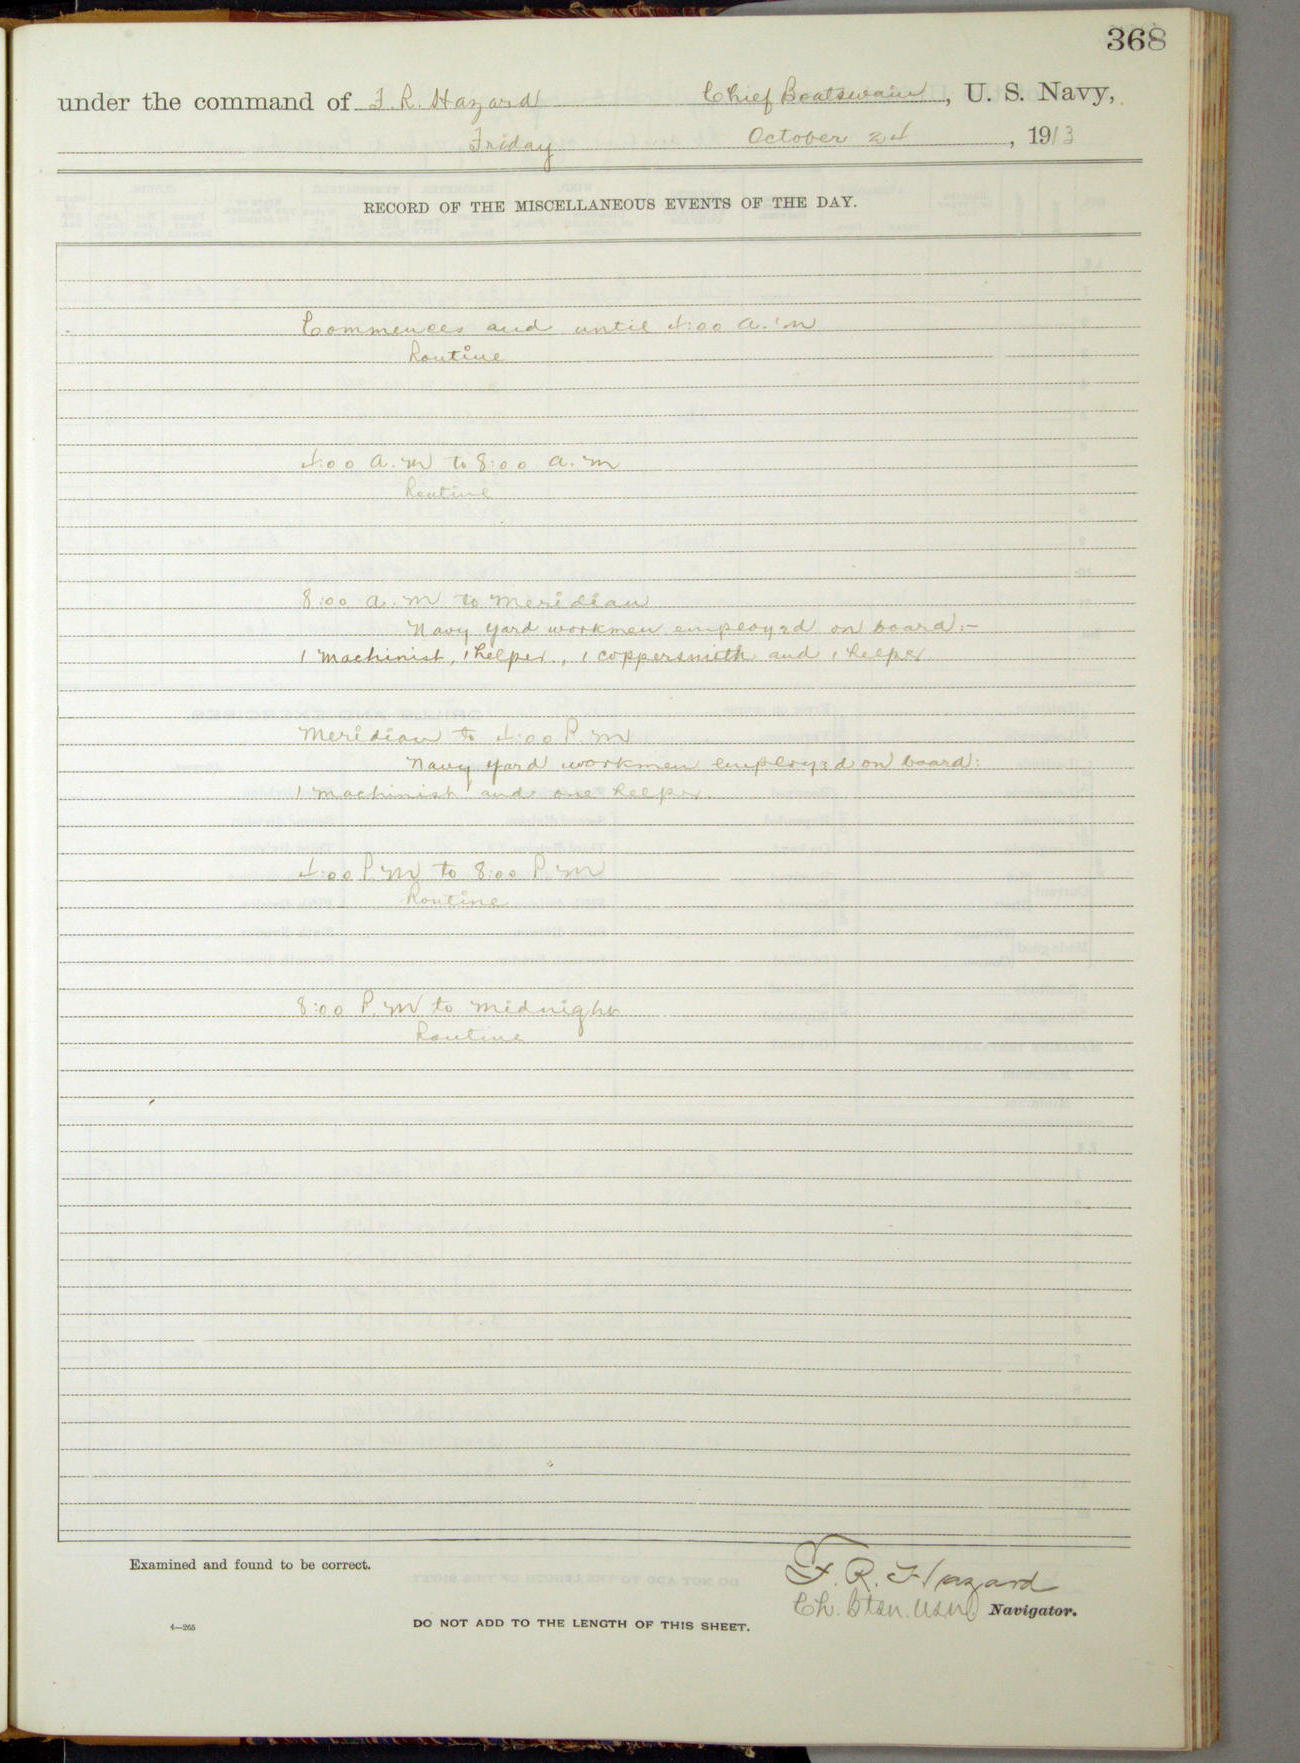 368
under the command of F. R. Hazard Chief Boatswain, U. S. Navy,
Friday October 24, 1913
RECORD OF THE MISCELLANEOUS EVENTS OF THE DAY.
Commences and until 4:00 a.m
Routine
4:00 a.m to 8:00 a.m
Routine
8:00 a.m to meridian
Navy yard workmen employed on board:-
1 machinist, 1 helper, 1 coppersmith and 1 helper
Meridian to 4:00 P.m
Navy yard workmen employed on board:
1 machinist and one helper.
4:00 P.m to 8:00 P.m
Routine
8:00 P.m to midnight
Routine
Examined and found to be correct.
F. R. Hazard
Ch. Btsn. USN. Navigator.
4—265 DO NOT ADD TO THE LENGTH OF THIS SHEET.